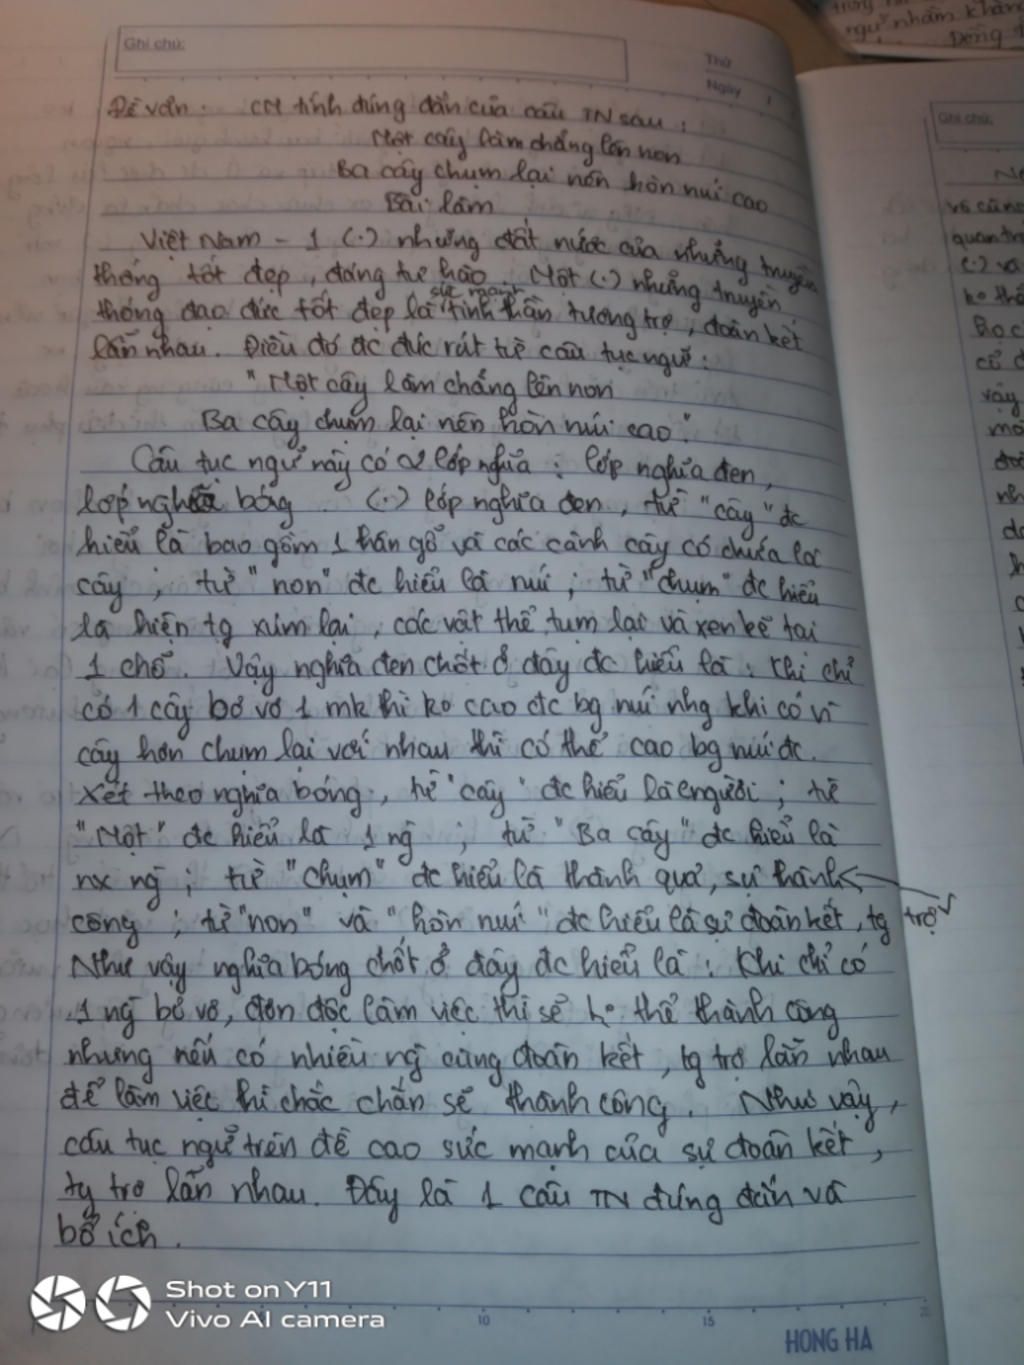 Ghi chú:
Thứ
Ngày /
Đề văn: CM tính đúng đắn của câu TN sau:
Một cây làm chẳng lên non
Ba cây chụm lại nên hòn núi cao
Bài làm
Việt Nam - 1 (.) những đất nước của những truyền
thống tốt đẹp, đáng tự hào. Một (.) những truyền
sức mạnh
thống đạo đức tốt đẹp là tinh thần tương trợ, đoàn kết
lẫn nhau. Điều đó đc đúc rút từ câu tục ngữ:
"Một cây làm chẳng lên non
Ba cây chụm lại nên hòn núi cao".
Câu tục ngữ này có 2 lớp nghĩa: lớp nghĩa đen,
lớp nghĩa bóng. (.) lớp nghĩa đen, từ "cây" đc
hiểu là bao gồm 1 thân gỗ và các cành cây có chứa lá
cây; từ "non" đc hiểu là núi; từ "chụm" đc hiểu
là hiện tg xúm lại, các vật thể tụm lại và xen kẽ tại
1 chỗ. Vậy nghĩa đen chốt ở đây đc hiểu là: Khi chỉ
có 1 cây bơ vơ 1 mk thì ko cao đc bg núi nhg khi có
cây hơn chụm lại với nhau thì có thể cao bg núi đc.
Xét theo nghĩa bóng, từ "cây" đc hiểu là người; từ
"Một" đc hiểu là 1 ng; từ "Ba cây" đc hiểu là
nx ng; từ "chụm" đc hiểu là thành quả, sự thành
công; từ "non" và "hòn núi" đc hiểu là sự đoàn kết, tg trợ
Như vậy nghĩa bóng chốt ở đây đc hiểu là: Khi chỉ có
1 ng bơ vơ, đơn độc làm việc thì sẽ ko thể thành công
nhưng nếu có nhiều ng cùng đoàn kết, tg trợ lẫn nhau
để làm việc thì chắc chắn sẽ thành công. Như vậy,
câu tục ngữ trên đề cao sức mạnh của sự đoàn kết,
tg trợ lẫn nhau. Đây là 1 câu TN đúng đắn và
bổ ích.
Shot on Y11
Vivo AI camera
10
15
HONG HA
ngữ nhằm khẳng
Ghi chú:
vô cùng
quan tr
(.) và
ko thể
vậy